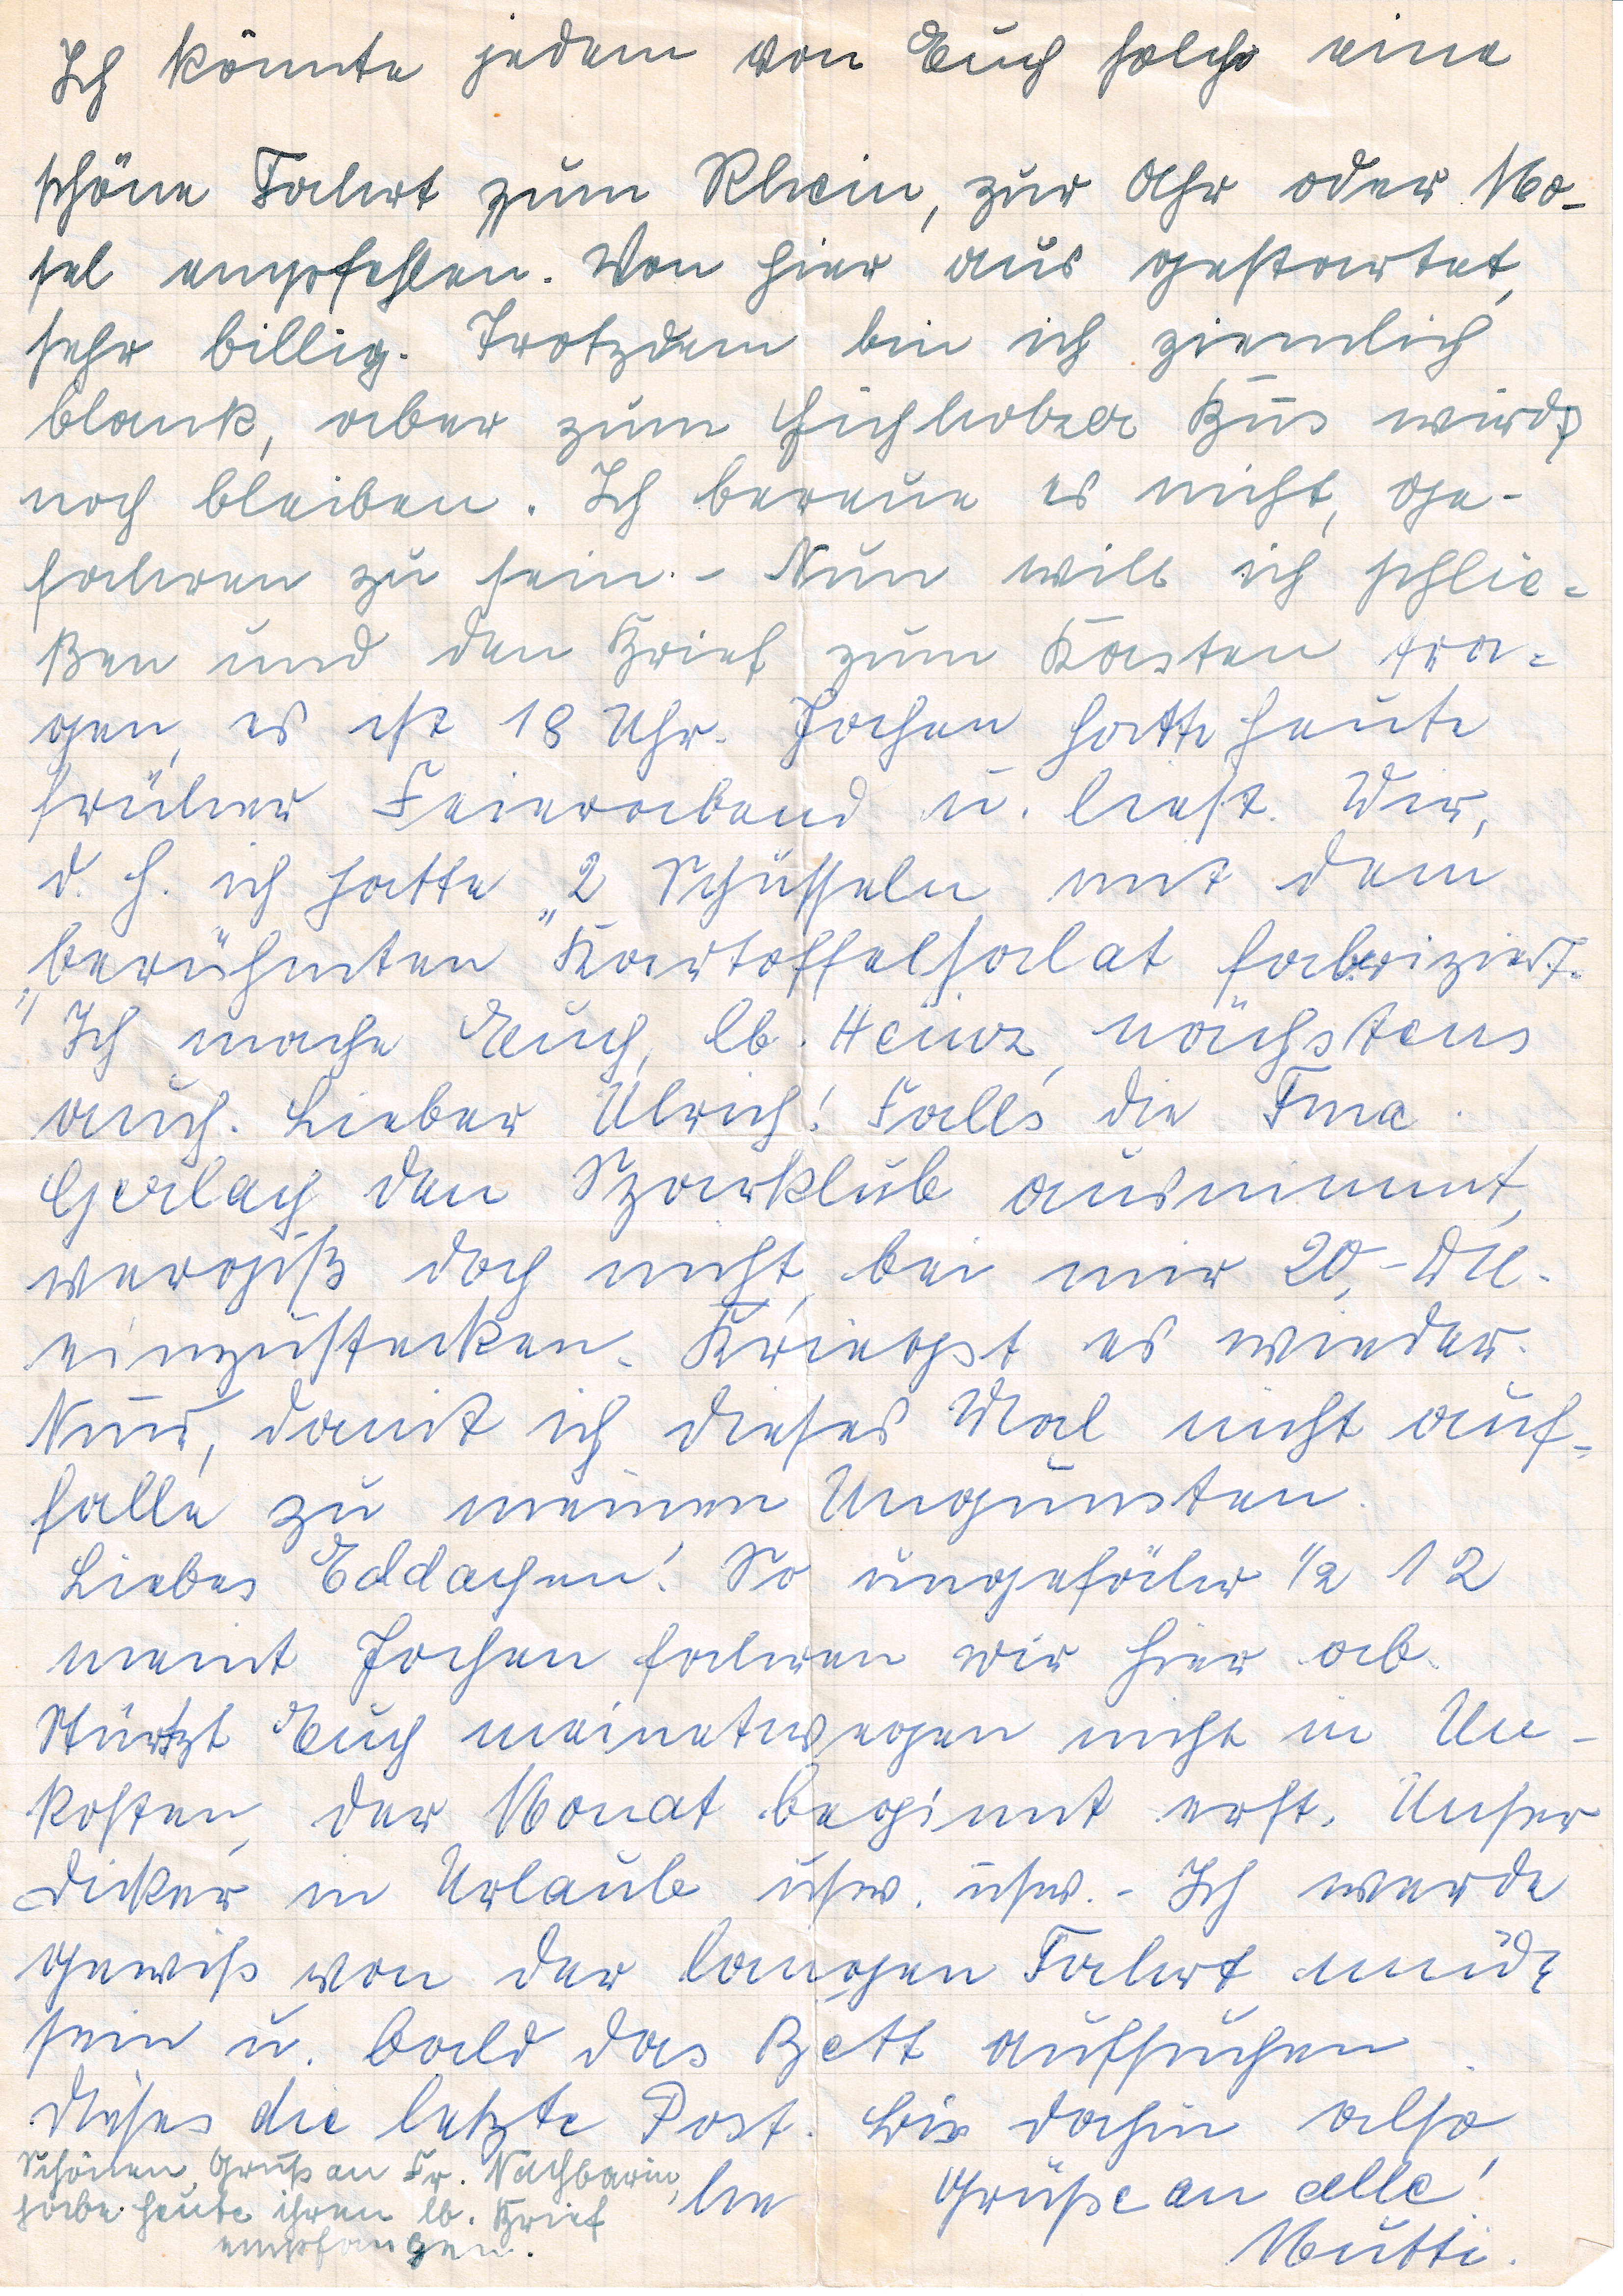 Ich könnte jedem von Euch solche eine
schöne Fahrt zum Rhein, zur Ahr oder Mo-
sel empfehlen. Von hier aus gestartet,
sehr billig. Trotzdem bin ich ziemlich
blank, aber zum Eichhobeler Bus wird's
noch bleiben. Ich bereue es nicht, ge-
fahren zu sein. - Nun will ich schlie-
ßen und den Brief zum Kasten tra-
gen, es ist 18 Uhr. Jochen hatte heute
früher Feierabend u. liest. Wir,
d. h. ich hatte 2 Schüsseln mit dem
„berühmten" Kartoffelsalat fabriziert.
Ich mache Euch, lb. Heinz, nächstens
auch. Lieber Ulrich! Falls die Fma.
Gerlach den Sparklub ausnimmt,
vergiß doch nicht, bei mir 20,- DM.
einzustecken. Kriegst es wieder.
Nur, damit ich dieses Mal nicht auf-
falle zu meinen Ungunsten.
Liebes Eddachen! So ungefähr 1/2 12
meint Jochen fahren wir hier ab.
Stürzt Euch meinetwegen nicht in Un-
kosten, der Monat beginnt erst. Unser
Dicker in Urlaub usw. usw. - Ich werde
gewiß von der langen Fahrt müde
sein u. bald das Bett aufsuchen
Dieses die letzte Post. Bis dahin also,
liebe Grüße an alle!
Mutti.
Schönen Gruß an Fr. Nachbarin,
habe heute ihren lb. Brief
empfangen.